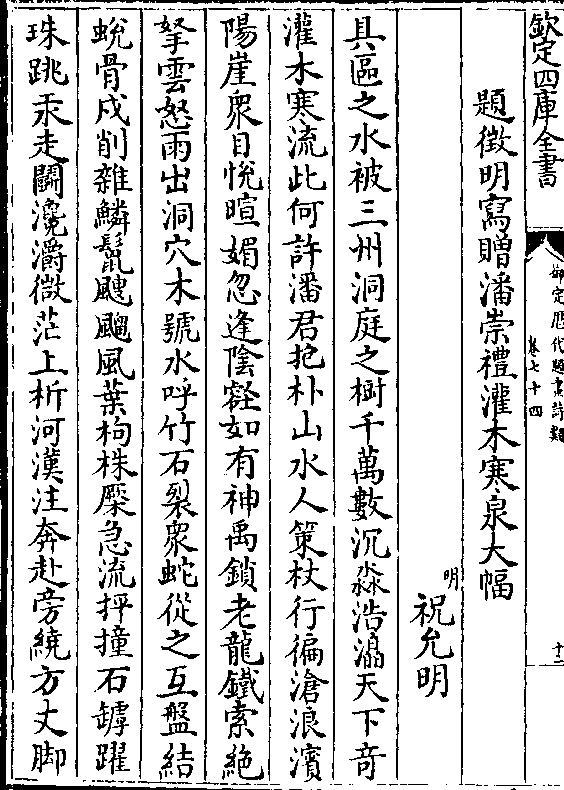 欽定四庫全書
御定歷代題畫詩類
卷七十四
十二
題徵明寫贈潘崇禮灌木寒泉大幅
明
祝允明
具區之水被三州洞庭之樹千萬數沉淼浩濤天下竒
灌木寒流此何許潘君抱朴山水人策杖行徧滄浪濱
陽崖衆目恱暄媚忽逢陰壑如有神禹鎖老龍鐵索絶
拏雲怒雨出洞穴木號水呼竹石裂衆蛇從之互盤結
蛻骨戍削雜鱗鬛颼飀風葉枸株橜急流抨撞石罅躍
珠跳汞走鬭瀺灂微茫上析河漢注奔赴旁繞方丈脚